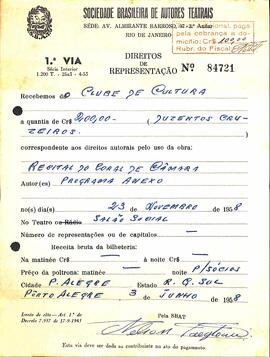 SOCIEDADE BRASILEIRA DE AUTORES TEATRAIS
SÉDE AV. ALMIRANTE BARROSO, 97-3.º Andar
RIO DE JANEIRO
pela cobrança a do-
micílio: Cr$
Rubr. do Fiscal
1.ª VIA
Série Interior
1.200 T. - 25x3 - 4-55
DIREITOS
DE
REPRESENTAÇÃO
Nº 84721
Recebemos do CLUBE DE CULTURA
a quantia de Cr$ 200,00 - (DUZENTOS CRU-
ZEIROS.
correspondente aos direitos autorais pelo uso da obra:
RECITAL DO CORAL DE CÂMARA
Autor(es) PROGRAMA ANEXO
no(s) dia(s) 23 NOVEMBRO de 1958
No Teatro ou Rádio SALÃO SOCIAL
Número de representações ou de capítulos —
Receita bruta da bilheteria:
Na matinée Cr$ — à noite Cr$ —
Preço da poltrona: matinée — noite P/SÓCIOS
Cidade P. ALEGRE Estado R. G. SUL
PORTO ALEGRE 3 de JUNHO de 1958
Isento de sêlo - Art. 1.º do
Decreto 7.957 de 17-9-1945
Pela SBAT
Esta via deve ser dada ao contribuinte no ato do pagamento.